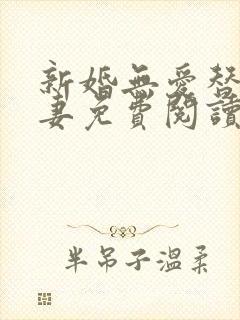 新婚無愛替
妻免費閱讀
半吊子溫柔